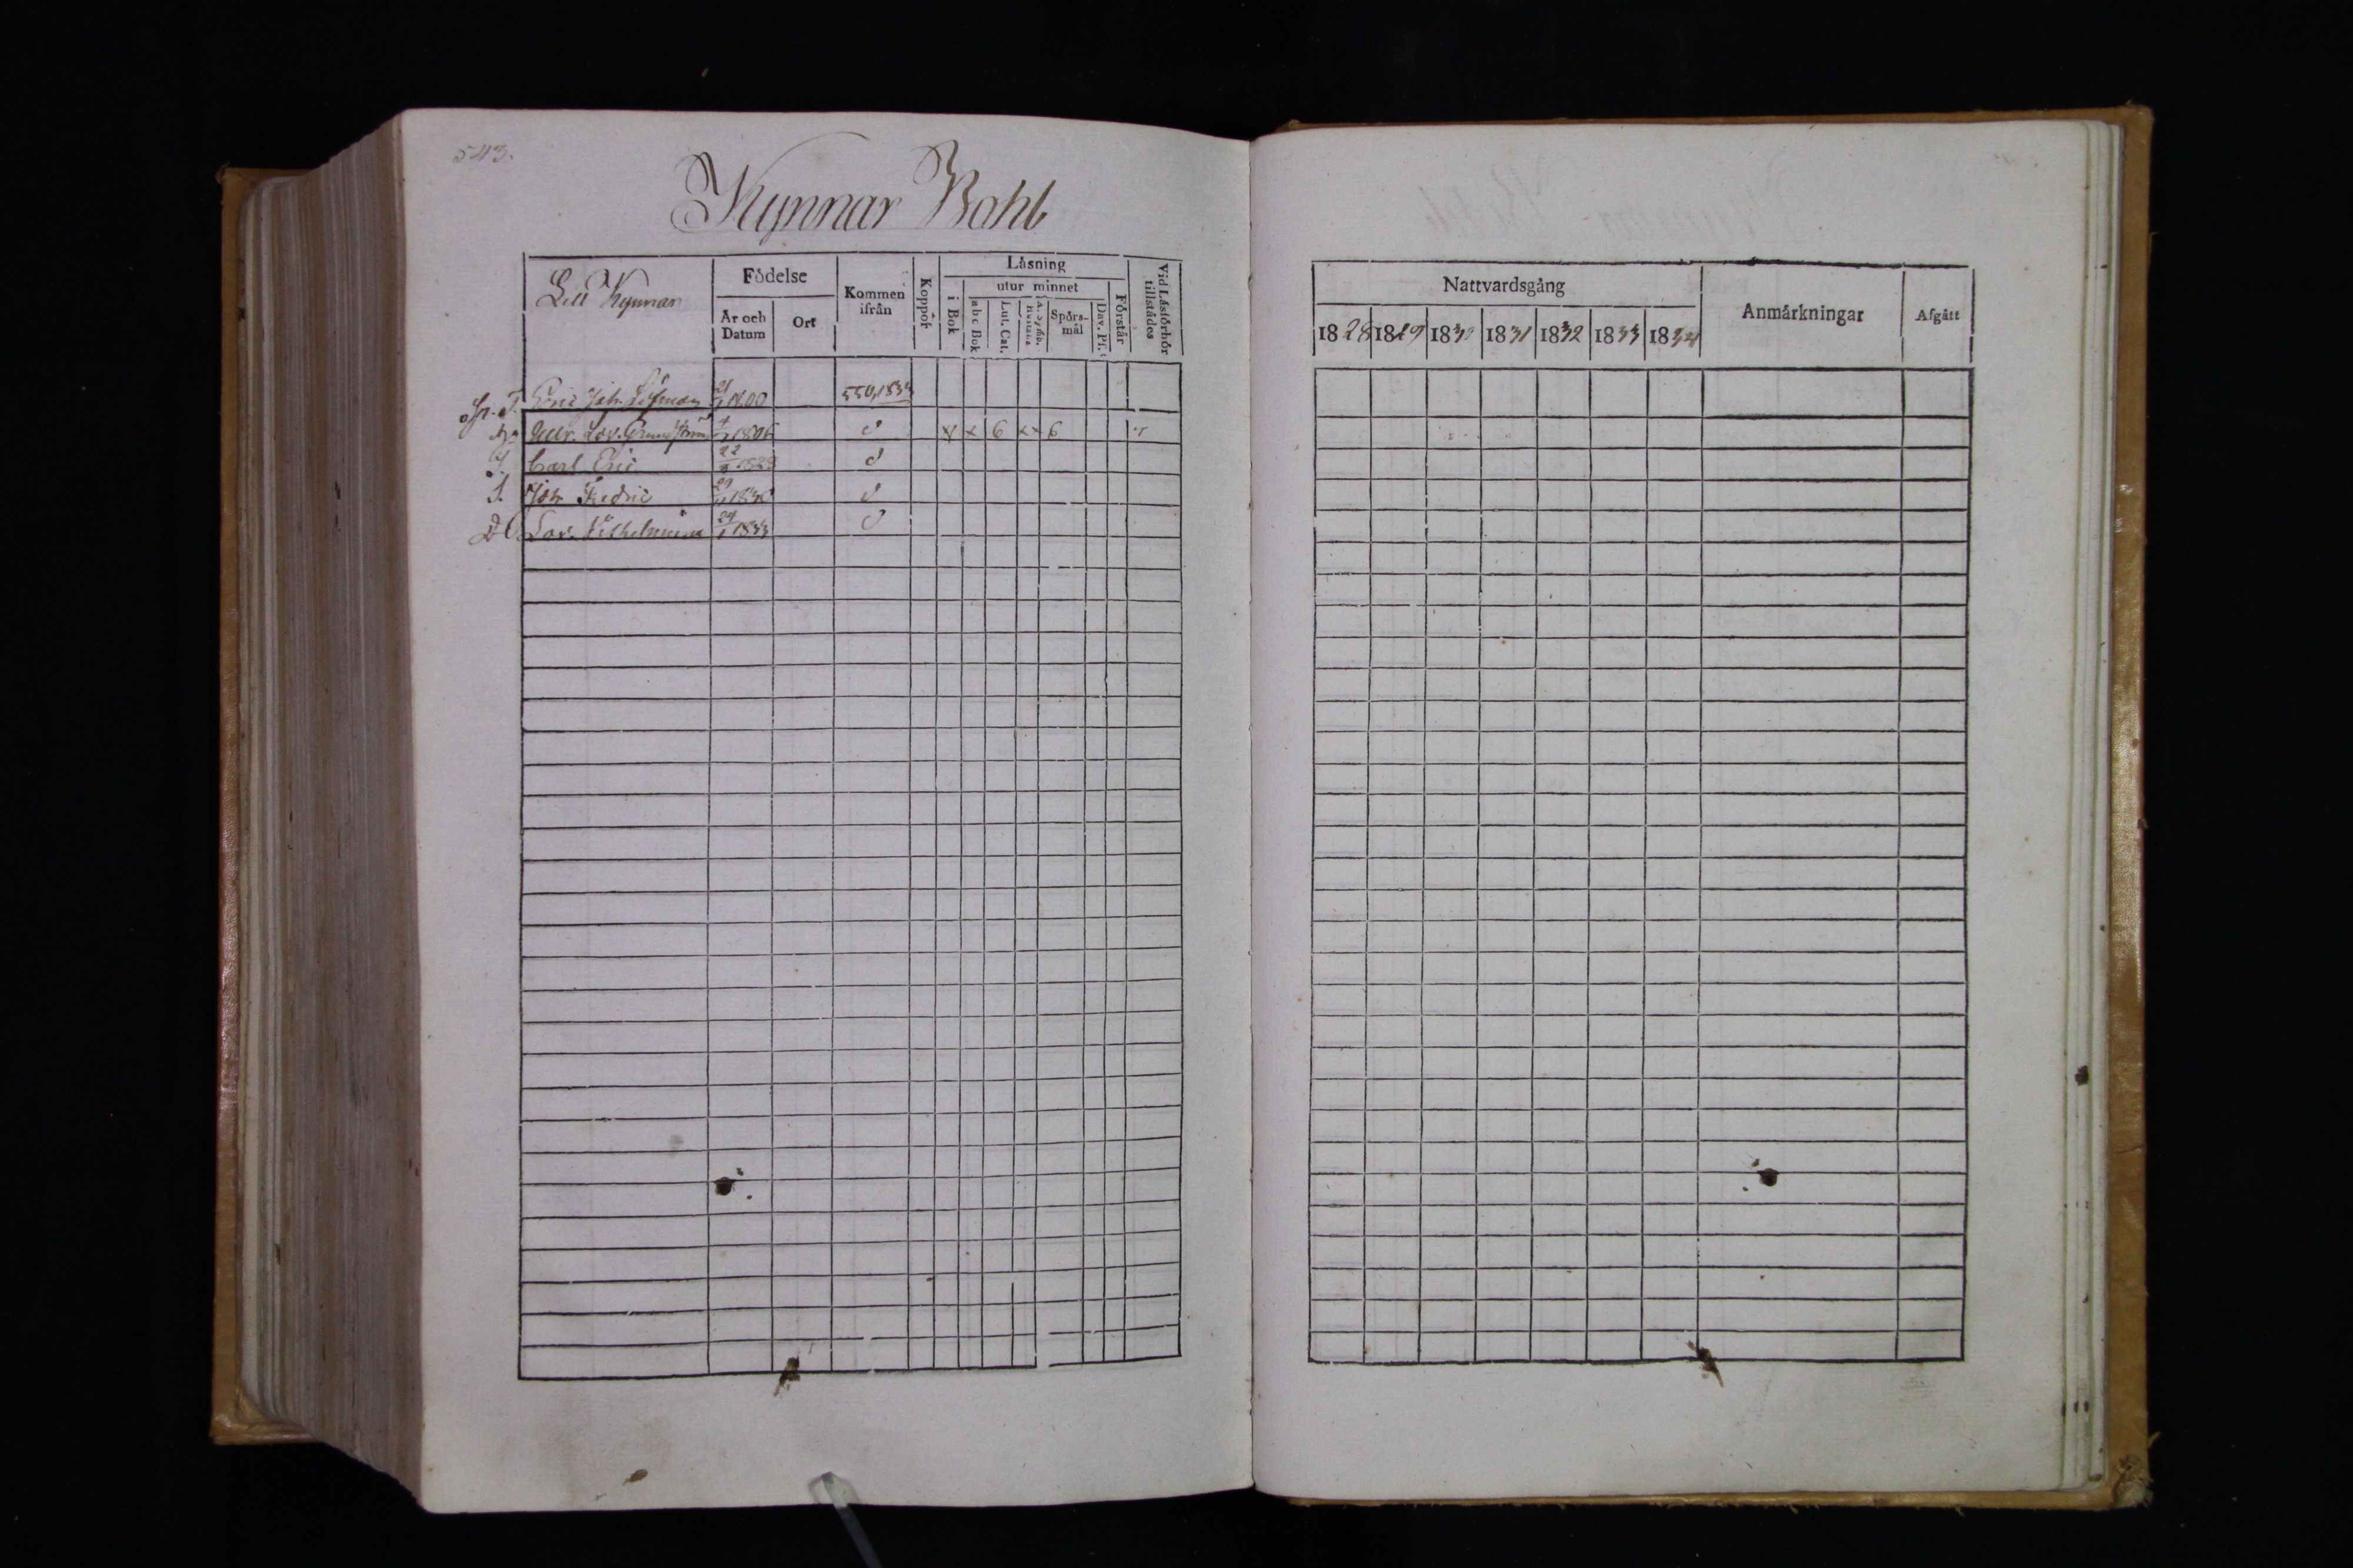 543.
Kynnar Bohl
Lill Kynnar
Födelse
År och Datum
Ort
Kommen ifrån
Koppór
Låsning
i Bok
utur minnet
abc Bok
Lut. Cat.
Spörs-mål
Dav. Ps.
Förstår
Vid Läsförhör tillstädes
Eric Joh. Löfman 21/ 1800 550, 1833
Lov. 4/ 1806 d x x 6 x x 6
S. Carl Eric 22/ 1829 d
S. Joh. Fredric d
D. Lov. Vilhelmina 24/1 1833 d
Nattvardsgång
1828 1829 1830 1831 1832 1833 1834
Anmärkningar
Afgått